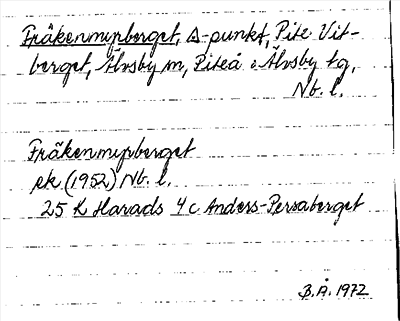 Fräkenmyrberget, Δ-punkt, Pite Vit-
berget, Älvsby m, Piteå o Älvsby tg,
Nb. l.
Fräkenmyrberget
ek (1952) Nb. l.
25 K Harads 4 c Anders-Persaberget
B.Å. 1972